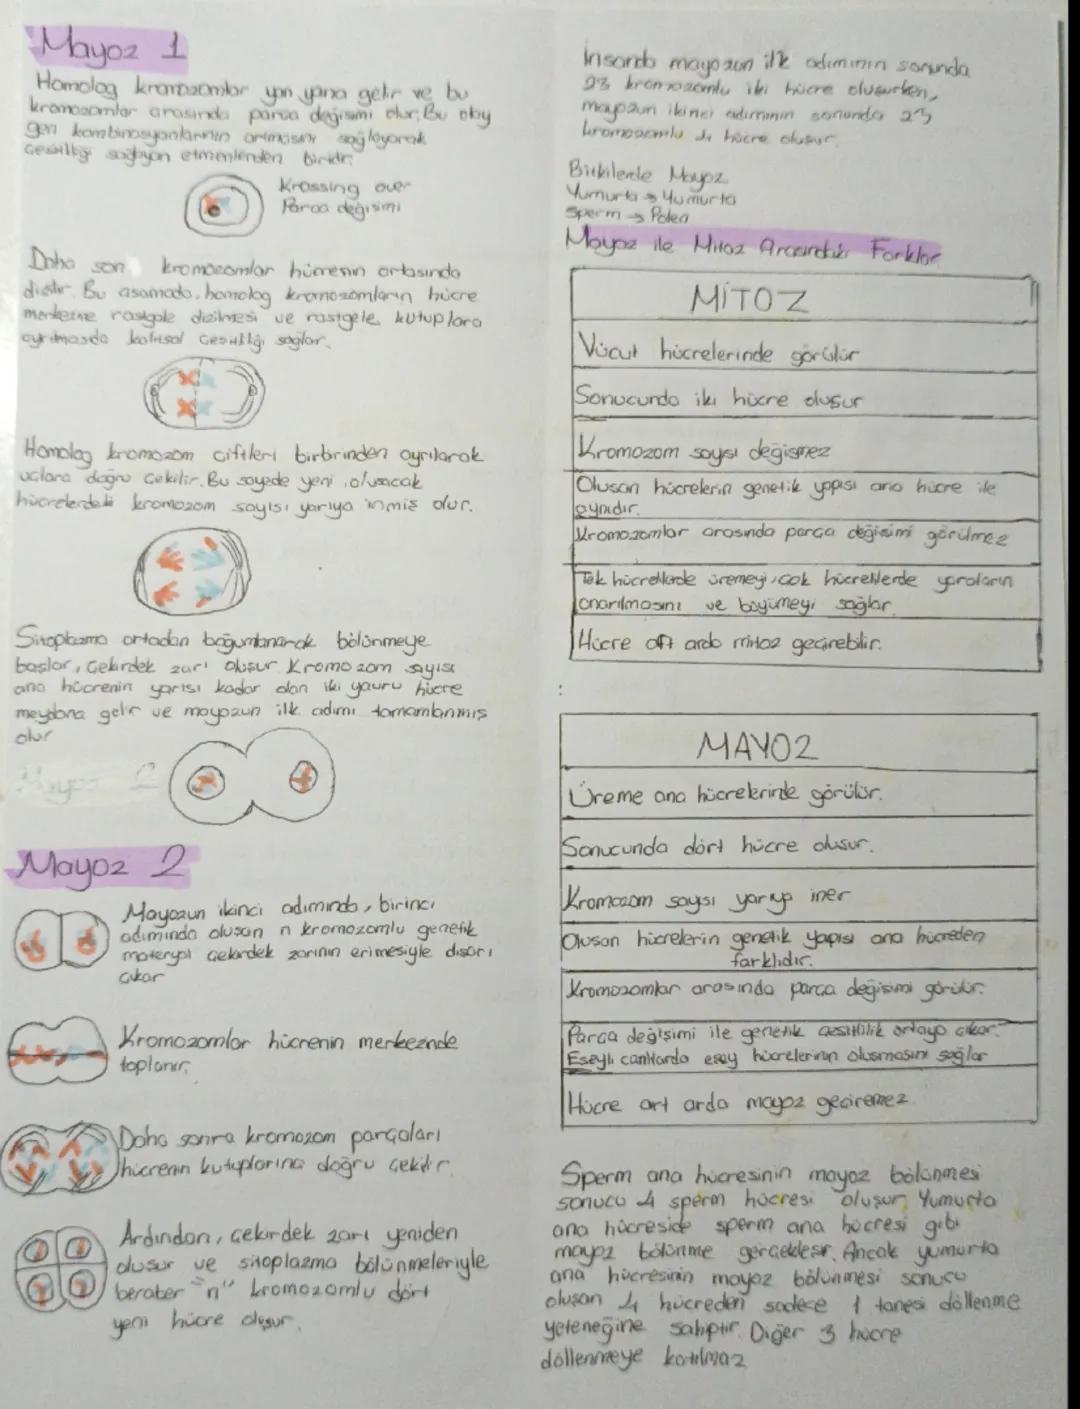 Mayoz 1
Homolog kromozomlar yan yana gelir ve bu
kromozomlar arasında parça değişimi olur. Bu olay
gen kombinasyonlarının artmasını sağlayarak
çeşitliliği sağlayan etmenlerden biridir.
Krossing over
Parça değişimi
Daha son kromozomlar hücrenin ortasında
dizilir. Bu aşamada, homolog kromozomların hücre
merkezine rastgele dizilmesi ve rastgele kutuplara
ayrılmasıda kalıtsal çeşitliliği sağlar.
Homolog kromozom çiftleri birbirinden ayrılarak
uçlara doğru çekilir. Bu sayede yeni oluşacak
hücrelerdeki kromozom sayısı yarıya inmiş olur.
Sitoplazma ortadan boğumlanarak bölünmeye
başlar, çekirdek zarı oluşur. Kromozom sayısı
ana hücrenin yarısı kadar olan iki yavru hücre
meydana gelir ve mayozun ilk adımı tamamlanmış
olur
Mayoz 2
Mayoz 2
Mayozun ikinci adımında, birinci
adımında oluşan n kromozomlu genetik
materyal çekirdek zarının erimesiyle dışarı
çıkar
Kromozomlar hücrenin merkezinde
toplanır.
Daha sonra kromozom parçaları
hücrenin kutuplarına doğru çekilir.
Ardından, çekirdek zarı yeniden
oluşur ve sitoplazma bölünmeleriyle
beraber "n" kromozomlu dört
yeni hücre oluşur.
İnsanda mayozun ilk adımının sonunda
23 kromozomlu iki hücre oluşurken,
mayozun ikinci adımının sonunda 23
kromozomlu hücre oluşur.
Bitkilerde Mayoz
Yumurta → Yumurta
Sperm → Polen
Mayoz ile Mitoz Arasındaki Farklar
MİTOZ
Vücut hücrelerinde görülür
Sonucunda iki hücre oluşur
Kromozom sayısı değişmez
Oluşan hücrelerin genetik yapısı ana hücre ile
aynıdır.
Kromozomlar arasında parça değişimi görülmez
Tek hücrelilerde üremeyi, çok hücrelilerde yaraların
onarılmasını ve büyümeyi sağlar.
Hücre art arda mitoz geçirebilir.
:
MAYOZ
Üreme ana hücrelerinde görülür.
Sonucunda dört hücre oluşur.
Kromozom sayısı yarıya iner
Oluşan hücrelerin genetik yapısı ana hücreden
farklıdır.
Kromozomlar arasında parça değişimi görülür.
Parça değişimi ile genetik çeşitlilik ortaya çıkar.
Eşeyli canlılarda eşey hücrelerinin oluşmasını sağlar
Hücre art arda mayoz geçiremez
Sperm ana hücresinin mayoz bölünmesi
sonucu 4 sperm hücresi oluşur, Yumurta
ana hücreside sperm ana hücresi gibi
mayoz bölünme gerçekleşir. Ancak yumurta
ana hücresinin mayoz bölünmesi sonucu
oluşan 4 hücreden sadece 1 tanesi döllenme
yeteneğine sahiptir. Diğer 3 hücre
döllenmeye katılmaz